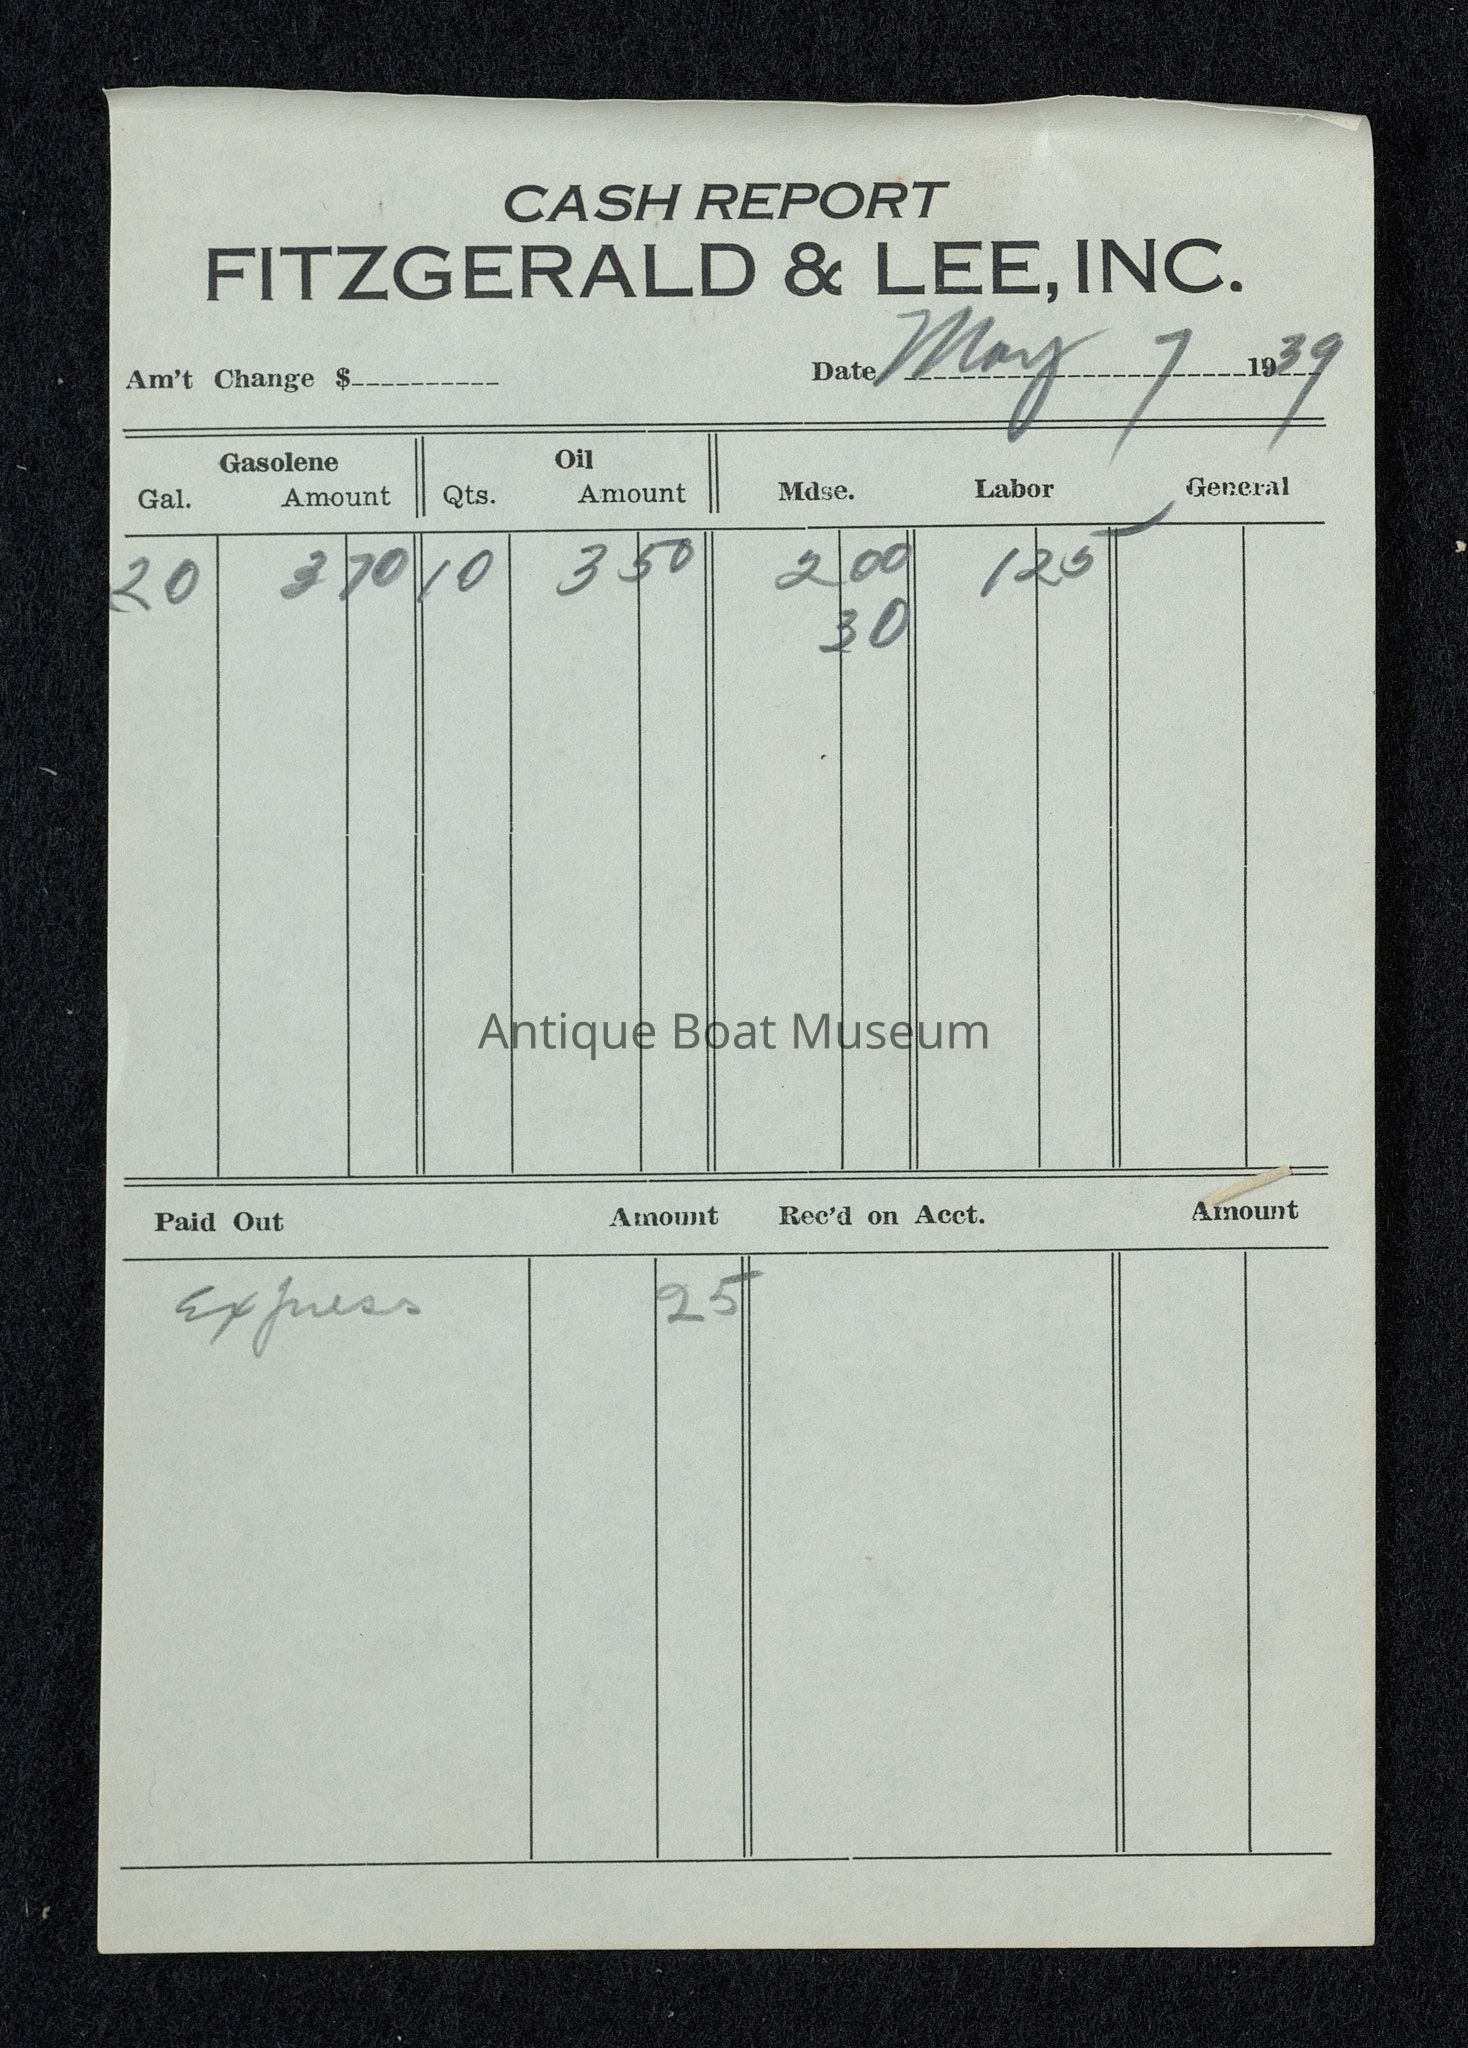 CASH REPORT
FITZGERALD & LEE, INC.
Am't Change $ Date May 7 1939
Gasolene Oil
Gal. Amount Qts. Amount Mdse. Labor General
20 3 70 10 3 50 2 00 1 25
30
Antique Boat Museum
Paid Out Amount Rec'd on Acct. Amount
Express 25